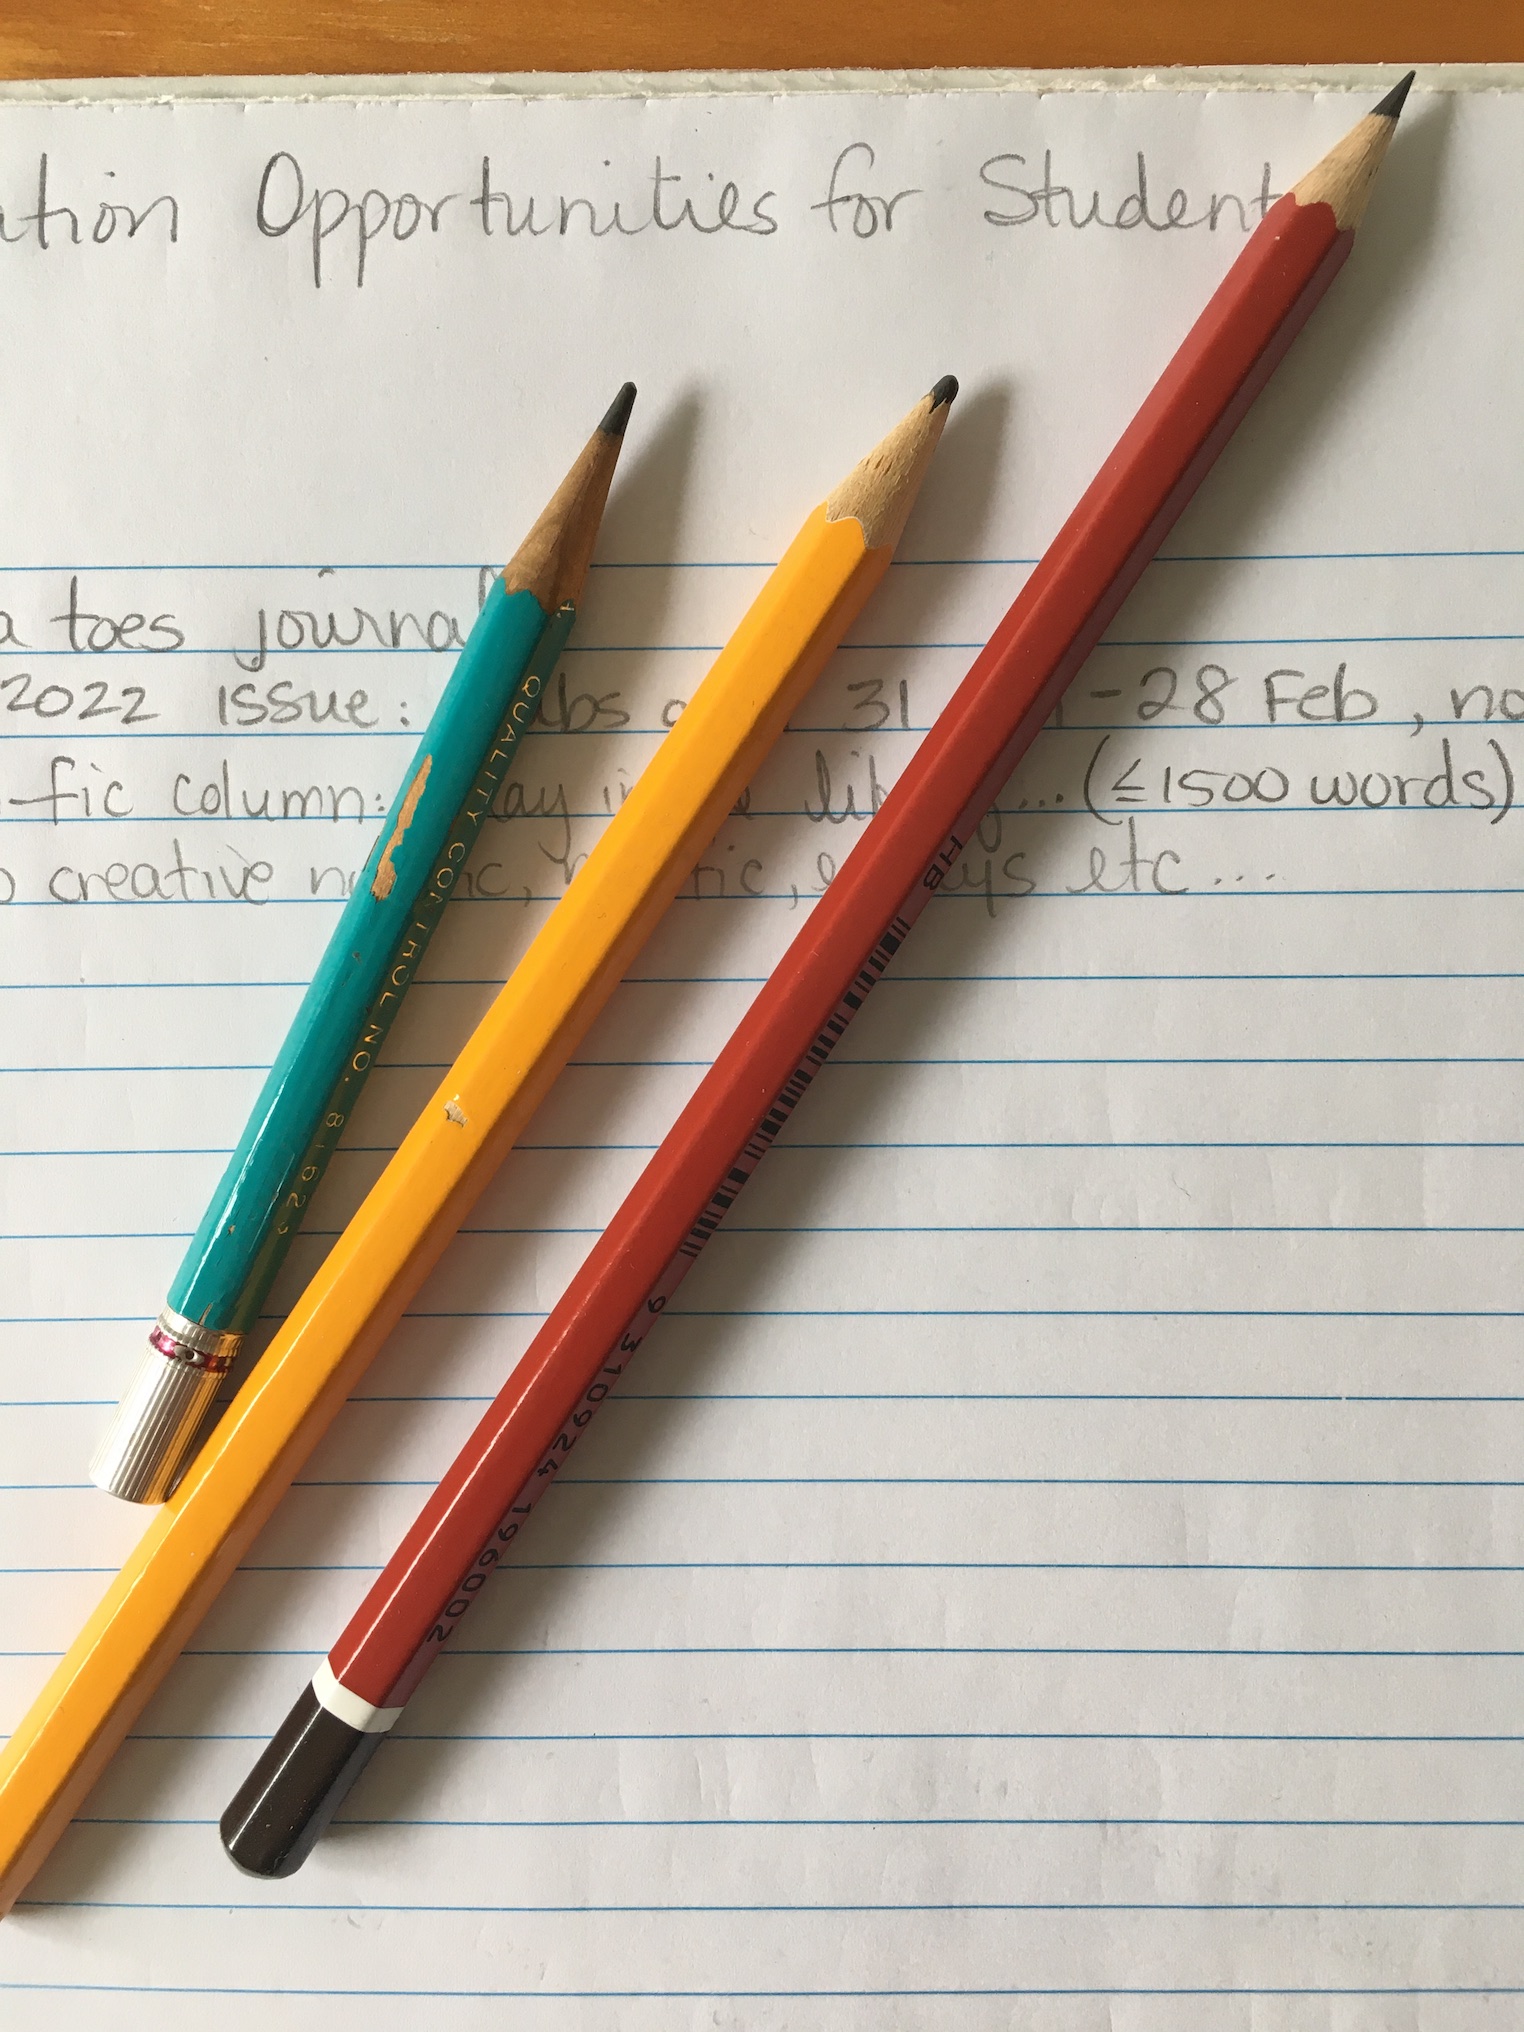 ation Opportunities for Student
a toes journal
2022 issue: 31 -28 Feb, no
-fic column: (≤1500 words)
creative etc....
QUALITY CONTROL NO.
HB
9 310924 196002